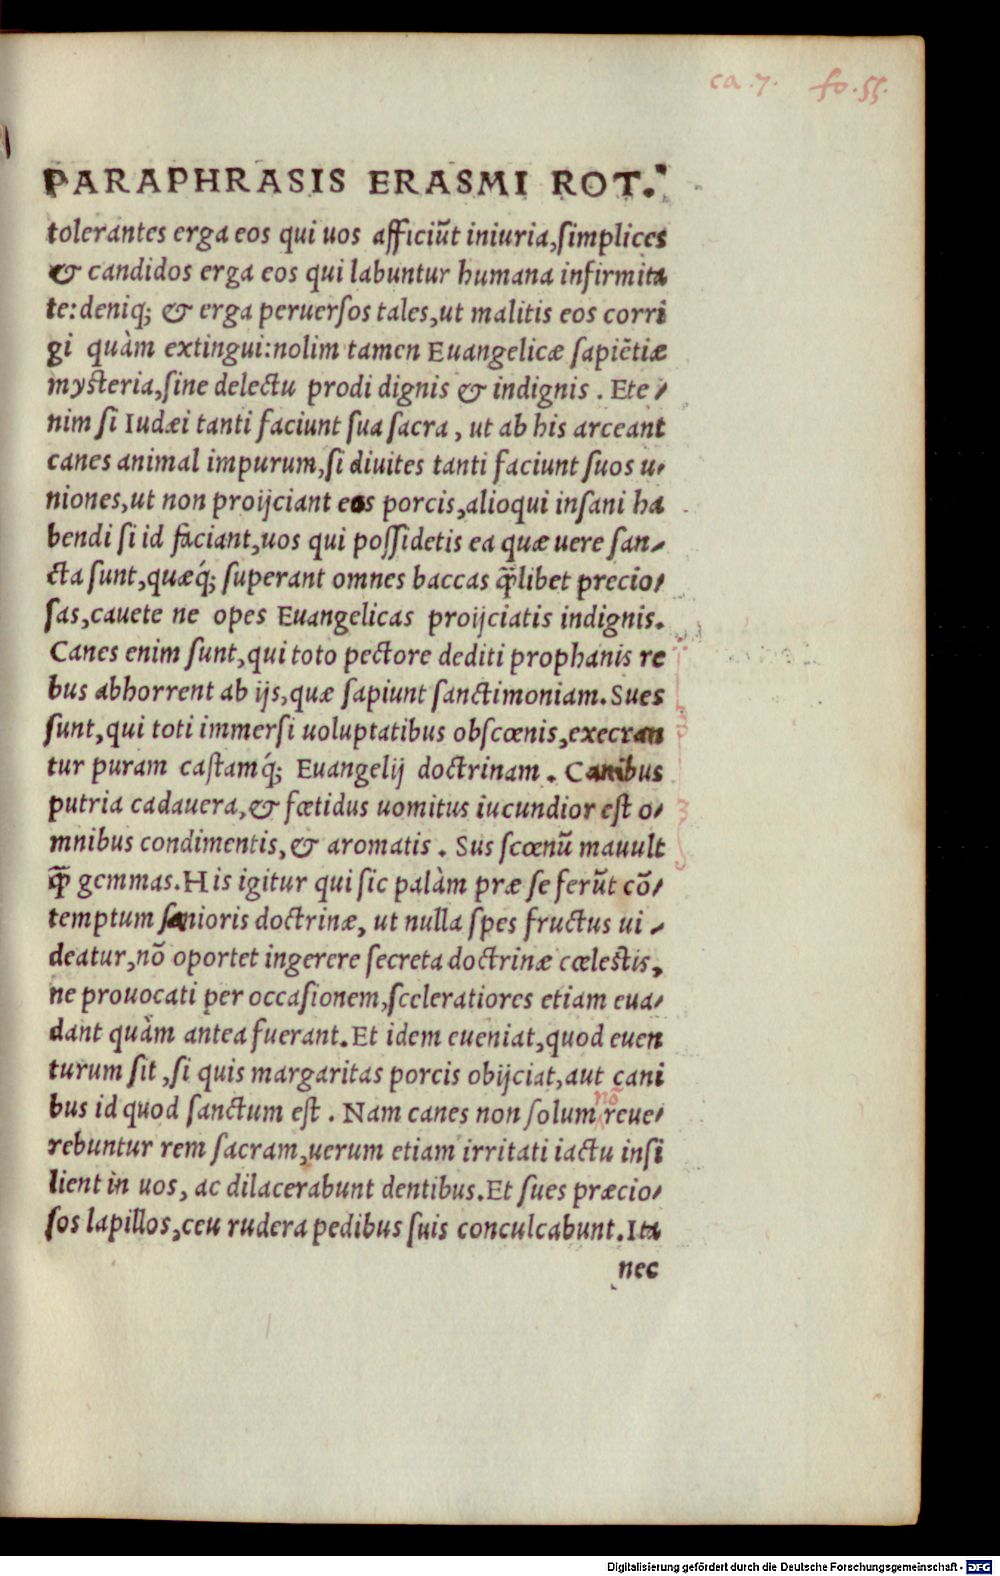 ca.7. fo.55.
PARAPHRASIS ERASMI ROT.
tolerantes erga eos qui uos afficiũt iniuria,simplices
& candidos erga eos qui labuntur humana infirmita
te:deniq; & erga peruersos tales,ut malitis eos corri
gi quàm extingui:nolim tamen Euangelicæ sapiẽtiæ
mysteria,sine delectu prodi dignis & indignis . Ete/
nim si Iudæi tanti faciunt sua sacra , ut ab his arceant
canes animal impurum,si diuites tanti faciunt suos u/
niones,ut non proijciant eos porcis,alioqui insani ha
bendi si id faciant,uos qui possidetis ea quæ uere san/
cta sunt,quæq́; superant omnes baccas q̃libet precio/
sas,cauete ne opes Euangelicas proijciatis indignis.
Canes enim sunt,qui toto pectore dediti prophanis re
bus abhorrent ab ijs,quæ sapiunt sanctimoniam.Sues
sunt,qui toti immersi uoluptatibus obscœnis,execran
tur puram castamq́; Euangelij doctrinam . Canibus
putria cadauera,& fœtidus uomitus iucundior est o/
mnibus condimentis,& aromatis . Sus scœnũ mauult
q̃ gemmas.His igitur qui sic palàm præ se ferũt cõ/
temptum sanioris doctrinæ, ut nulla spes fructus ui /
deatur,nõ oportet ingerere secreta doctrinæ cœlestis,
ne prouocati per occasionem,sceleratiores etiam eua/
dant quàm antea fuerant.Et idem eueniat,quod euen
turum sit ,si quis margaritas porcis obijciat,aut cani
bus id quod sanctum est . Nam canes non solum nõ reue/
rebuntur rem sacram,uerum etiam irritati iactu insi
lient in uos, ac dilacerabunt dentibus.Et sues præcio/
sos lapillos,ceu rudera pedibus suis conculcabunt.Ita
nec
Digitalisierung gefördert durch die Deutsche Forschungsgemeinschaft - DFG